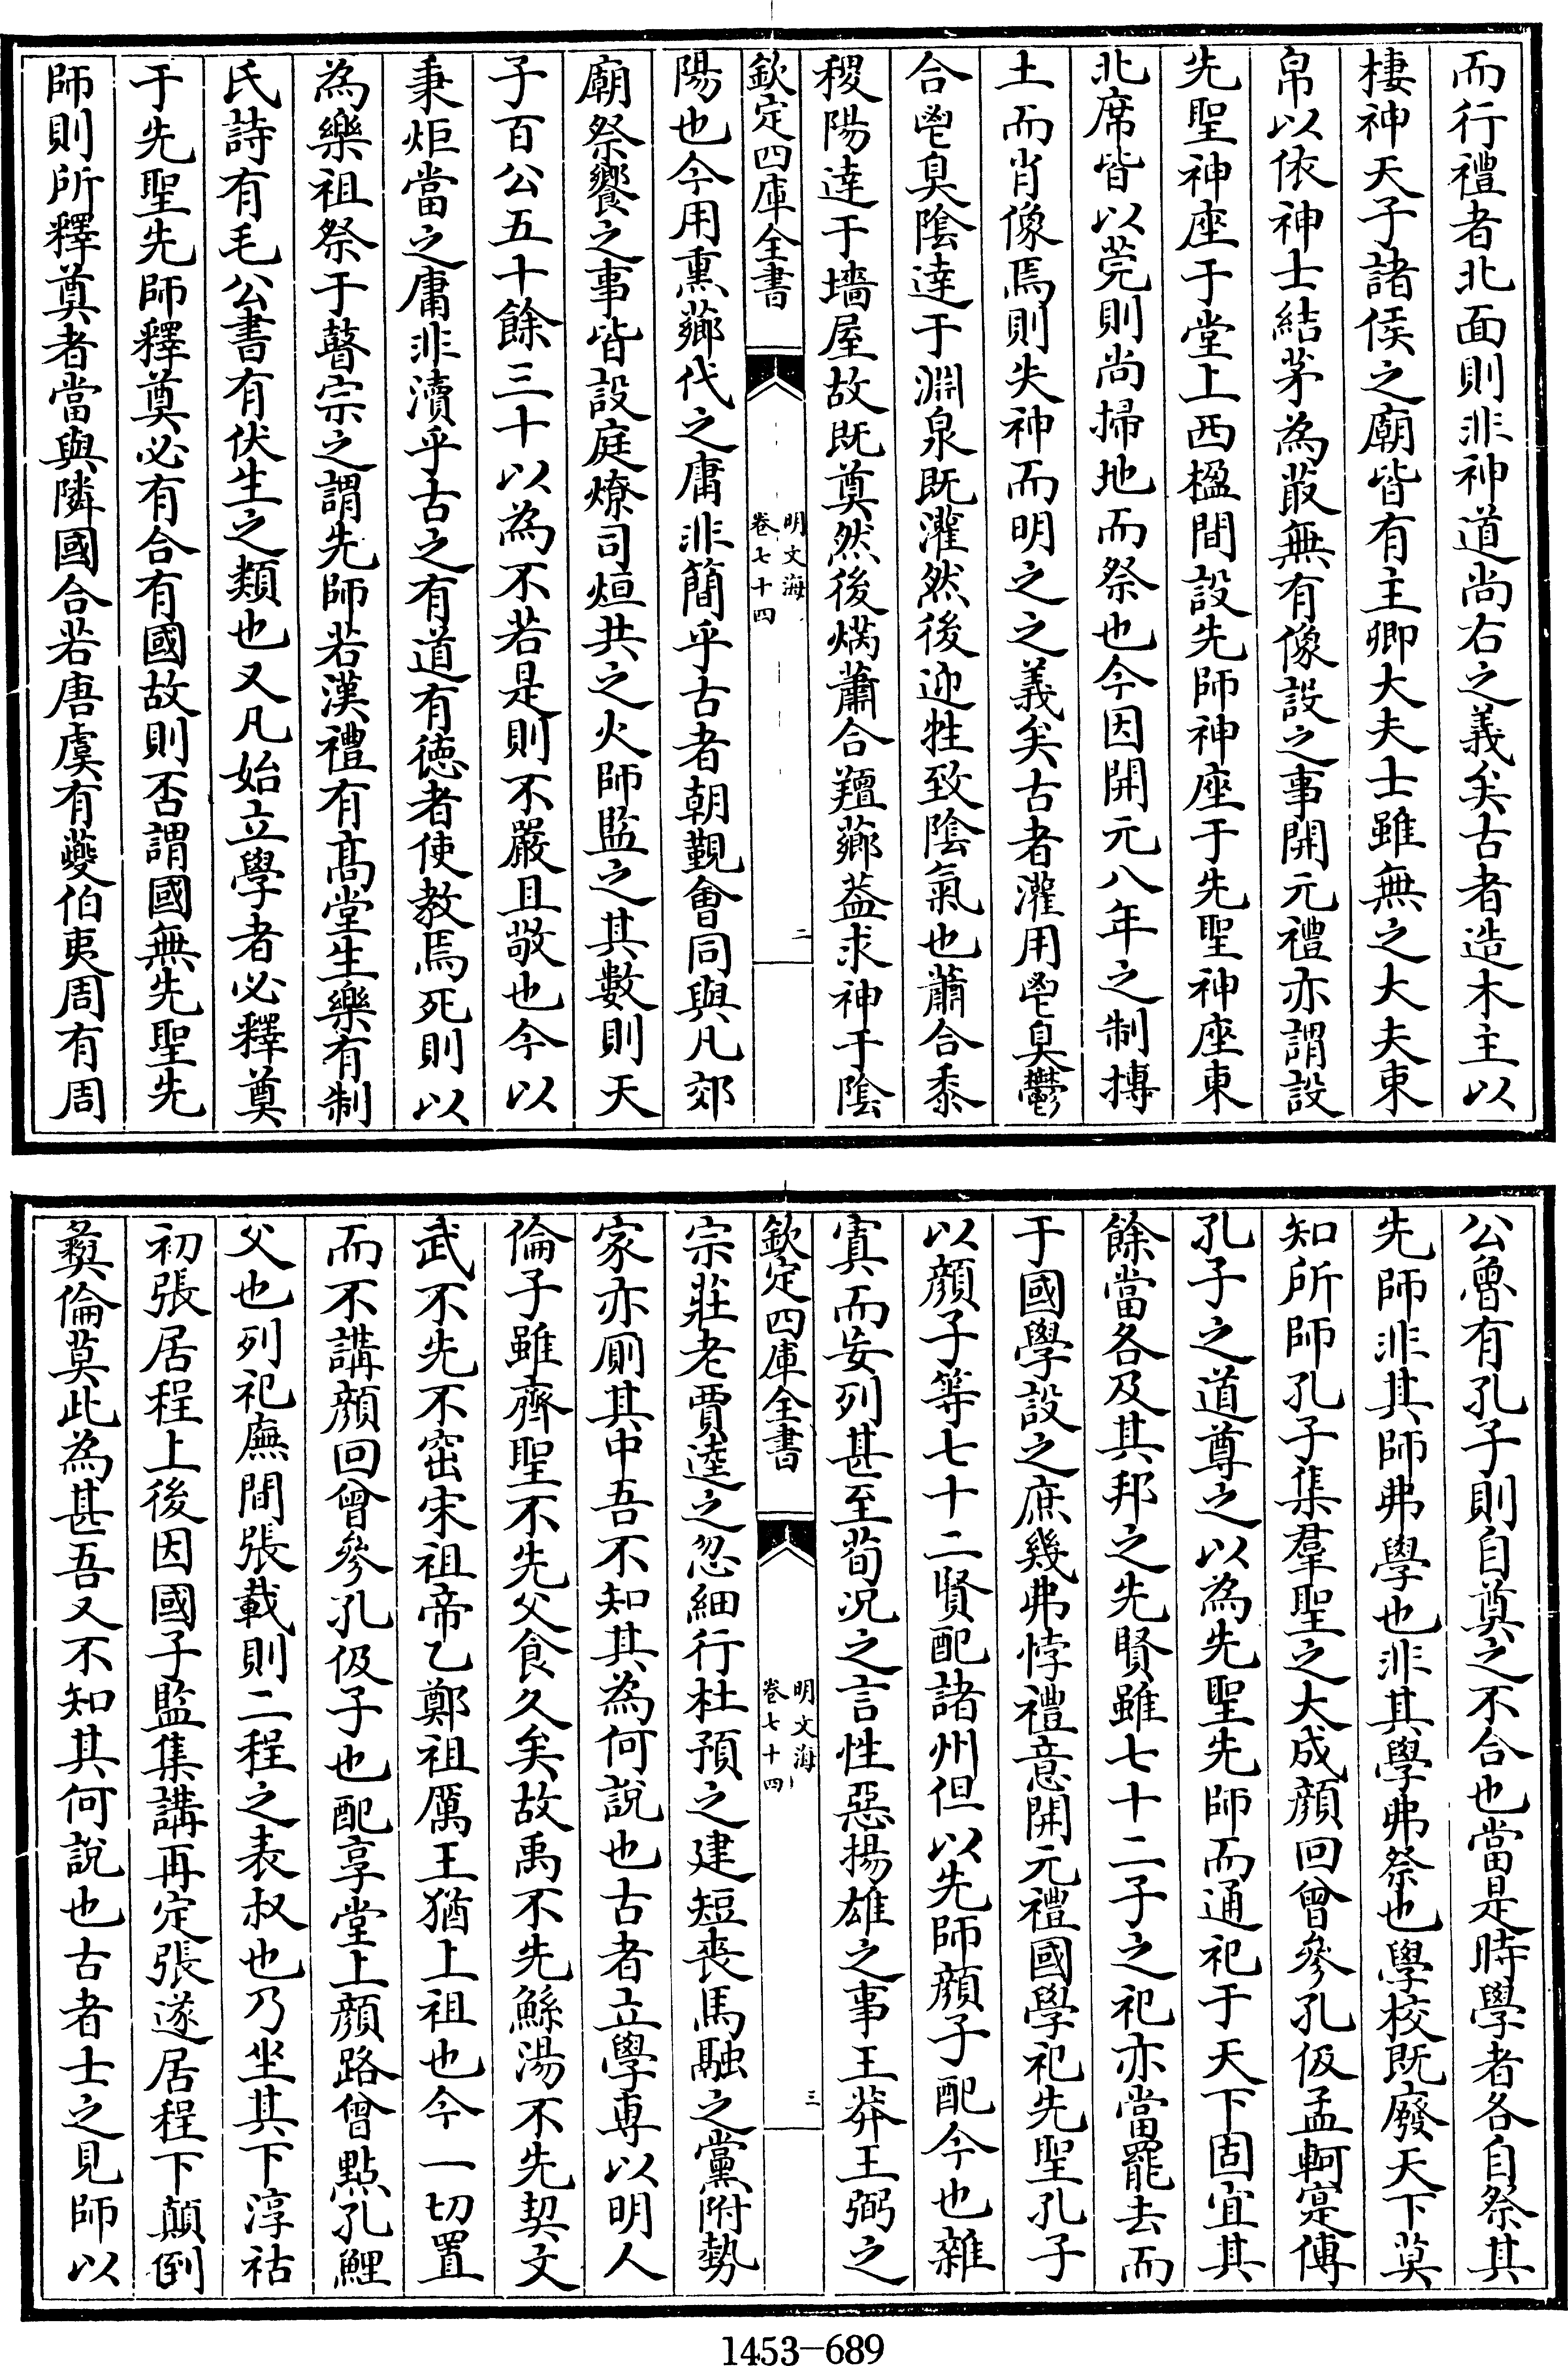 而行禮者北面則非神道尚右之義矣古者造木主以
棲神天子諸侯之廟皆有主卿大夫士雖無之大夫束
帛以依神士結茅為菆無有像設之事開元禮亦謂設
先聖神座于堂上西楹間設先師神座于先聖神座東
北席皆以莞則尚掃地而祭也今因開元八年之制摶
土而肖像焉則失神而明之之義矣古者灌用鬯臭鬱
合鬯臭陰達于淵泉既灌然後迎牲致陰氣也蕭合黍
稷陽達于墻屋故既奠然後焫蕭合羶薌蓋求神于陰
欽定四庫全書
明文海
卷七十四
二
陽也今用熏薌代之庸非簡乎古者朝覲會同與凡郊
廟祭饗之事皆設庭燎司烜共之火師監之其數則天
子百公五十餘三十以為不若是則不嚴且敬也今以
秉炬當之庸非瀆乎古之有道有徳者使教焉死則以
為樂祖祭于瞽宗之謂先師若漢禮有髙堂生樂有制
氏詩有毛公書有伏生之類也又凡始立學者必釋奠
于先聖先師釋奠必有合有國故則否謂國無先聖先
師則所釋奠者當與隣國合若唐虞有夔伯夷周有周
公魯有孔子則自奠之不合也當是時學者各自祭其
先師非其師弗學也非其學弗祭也學校既廢天下莫
知所師孔子集羣聖之大成顔回曾參孔伋孟軻寔傳
孔子之道尊之以為先聖先師而通祀于天下固宜其
餘當各及其邦之先賢雖七十二子之祀亦當罷去而
于國學設之庶幾弗悖禮意開元禮國學祀先聖孔子
以顔子等七十二賢配諸州但以先師顔子配今也雜
寘而妄列甚至荀況之言性惡揚雄之事王莽王弼之
欽定四庫全書
明文海
卷七十四
三
宗莊老賈逵之忽細行杜預之建短喪馬融之黨附勢
家亦厠其中吾不知其為何說也古者立學専以明人
倫子雖齊聖不先父食久矣故禹不先鯀湯不先契文
武不先不窋宋祖帝乙鄭祖厲王猶上祖也今一切置
而不講顔回曾參孔伋子也配享堂上顔路曾㸃孔鯉
父也列祀廡間張載則二程之表叔也乃坐其下淳祜
初張居程上後因國子監集講再定張遂居程下顛倒
彛倫莫此為甚吾又不知其何說也古者士之見師以
1453-689